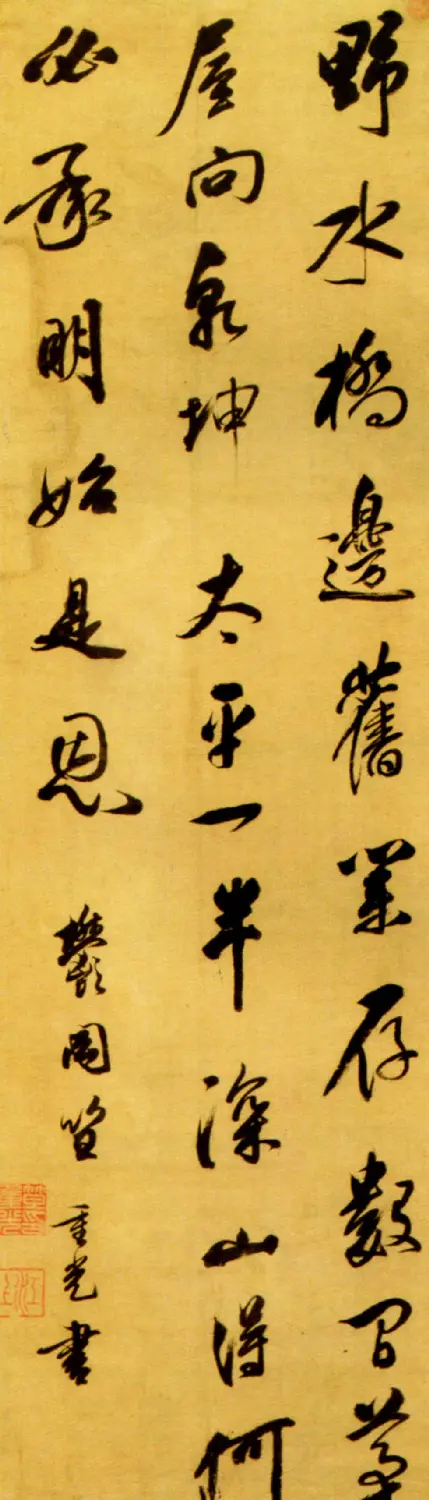 野水橋邊舊業存數間茅
屋向乾坤太平一半深山得何
必承明始是恩
鬱岡笪重光書